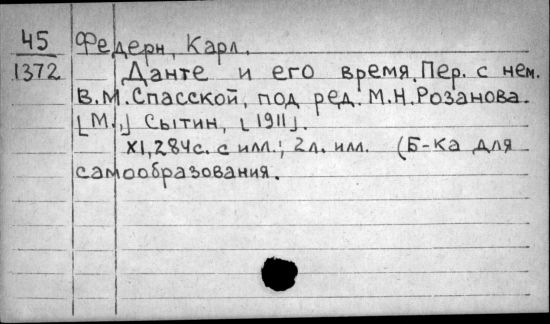 45 Федерн, Карл.
1372 Данте и его время. Пер. с нем.
В.М.Спасской, под ред. М.Н.Розанова.
[М.,] Сытин, [1911].
XI, 284с. с илл.; 2л. илл. (Б-ка для
самообразования.